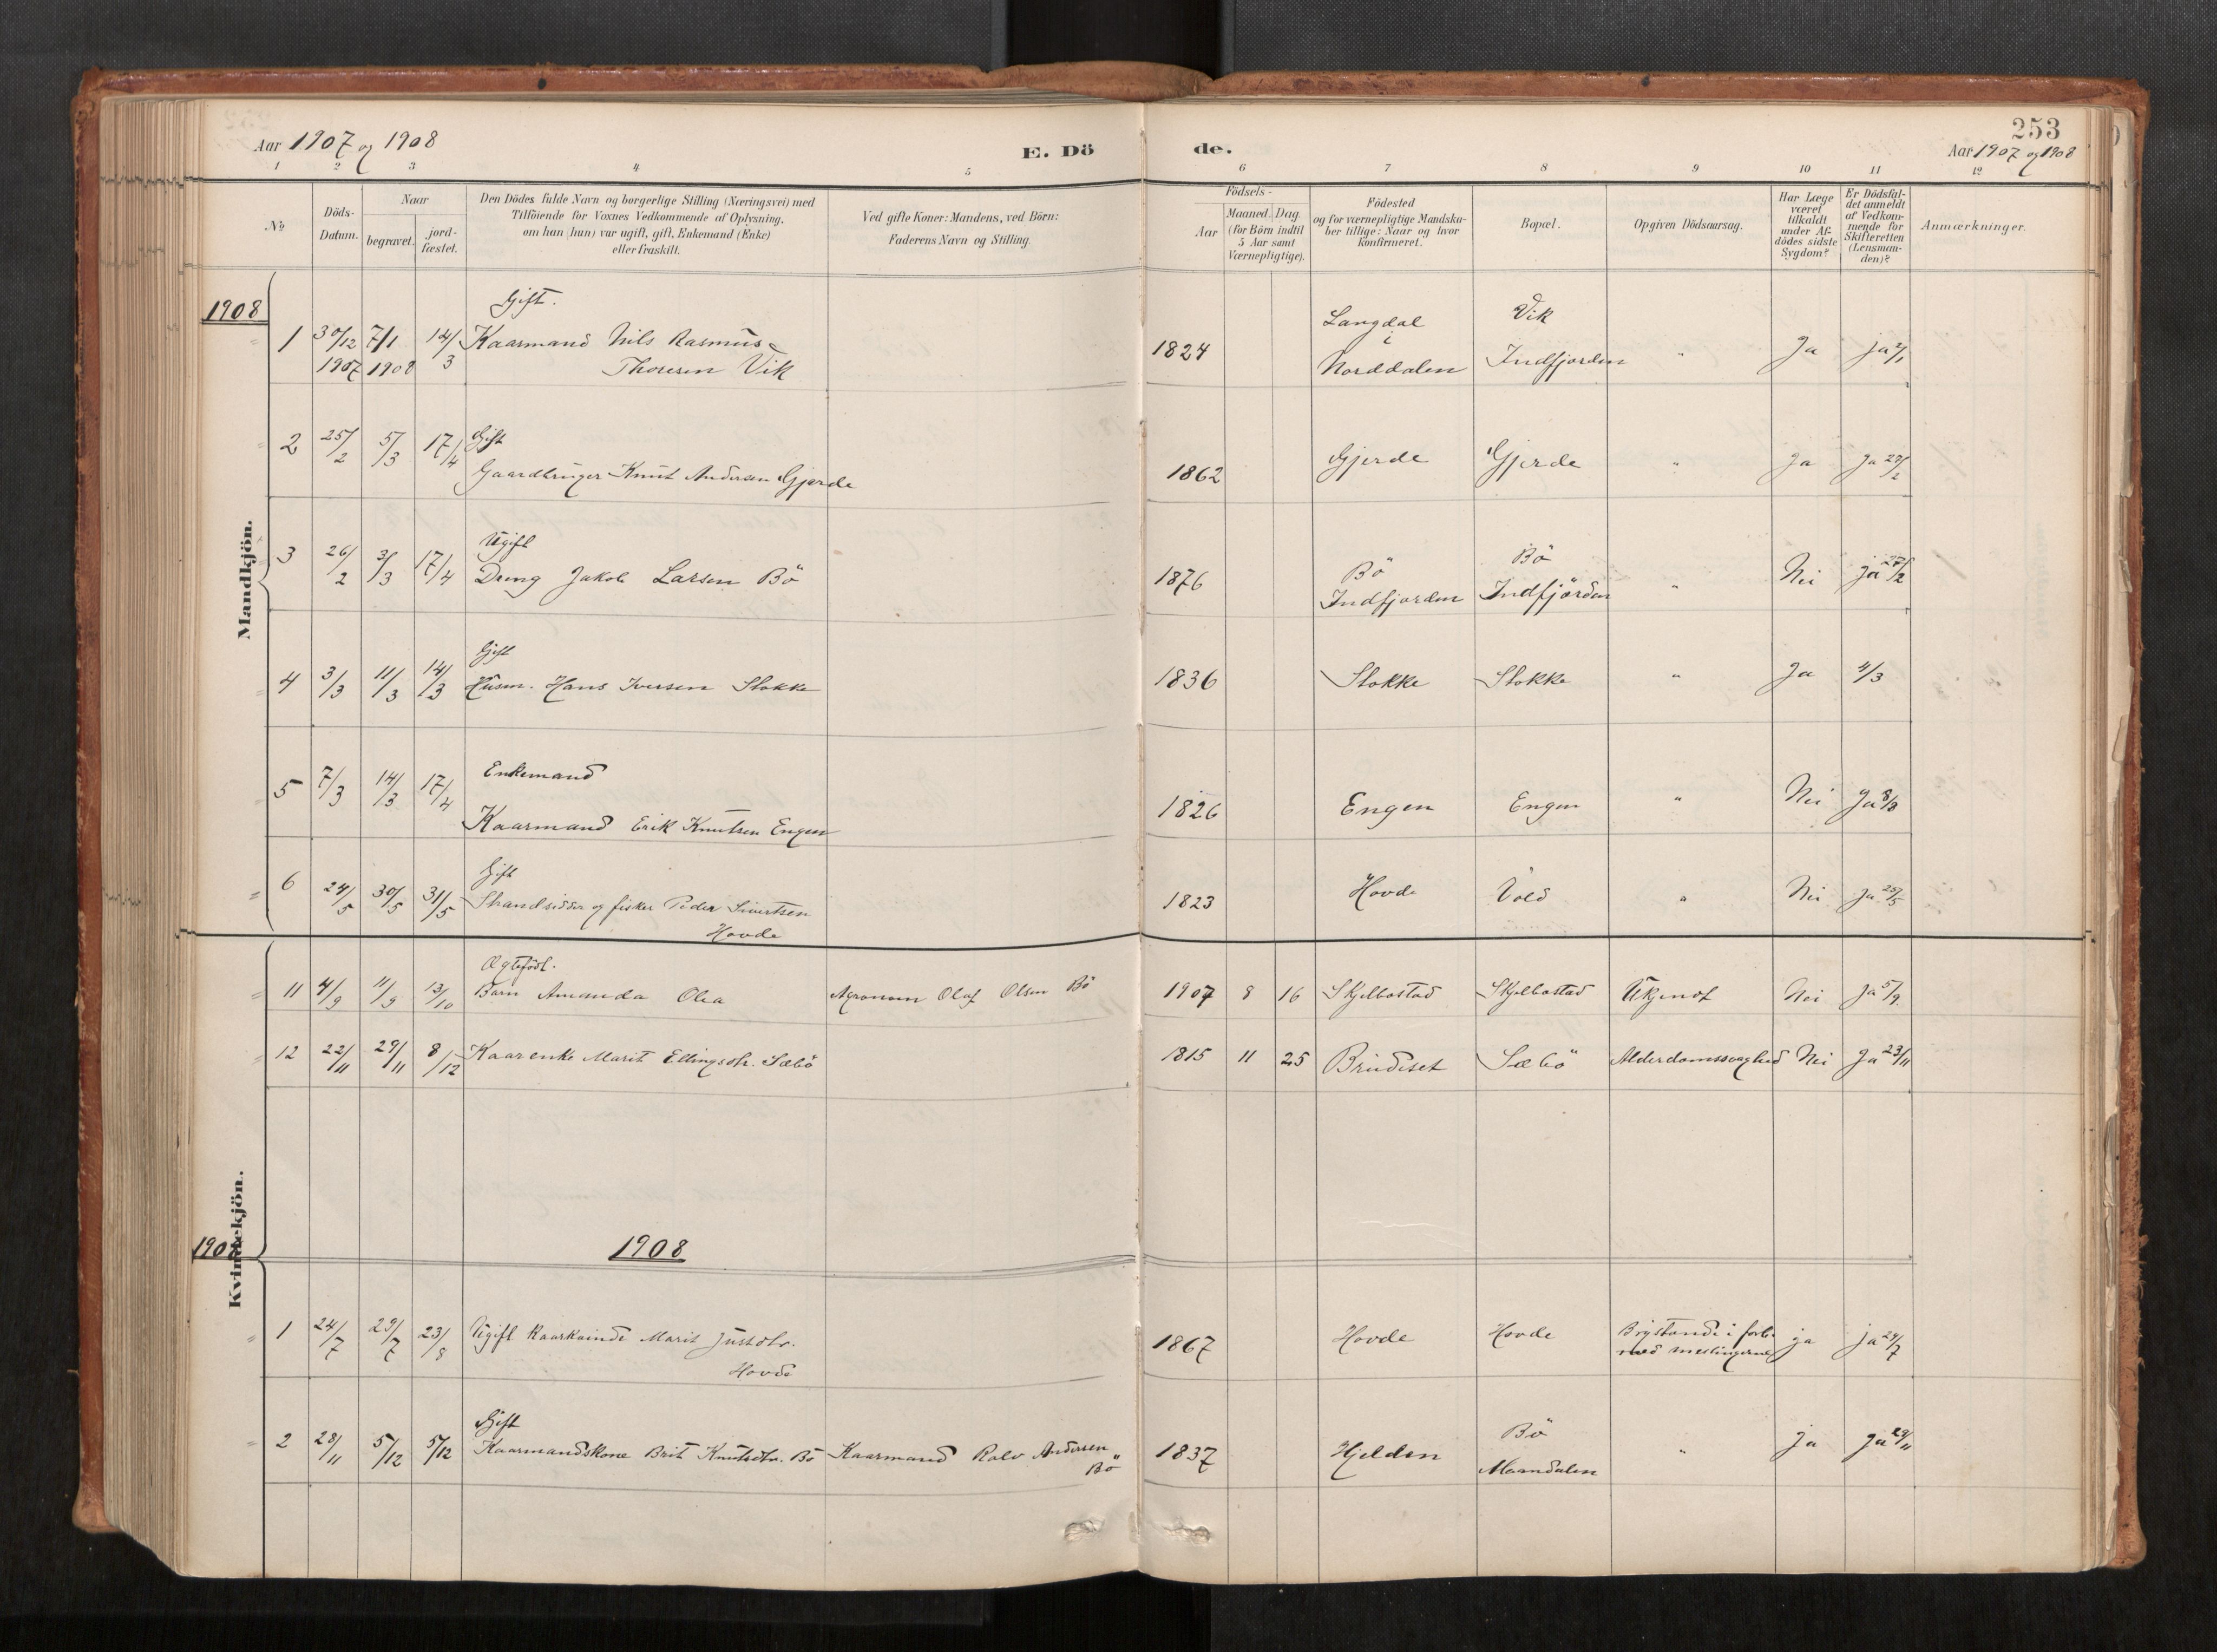 253
Aar 1907 og 1908
E. Dö
de.
Aar 1907 og 1908
1 2 3 4 5 6 7 8 9 10 11 12
No
Döds-Datum.
Naar
begravet.
jord-fæstet.
Den Dödes fulde Navn og borgerlige Stilling (Næringsvei) med
Tilföiende for Voxnes Vedkommende af Oplysning,
om han (hun) var ugift, gift, Enkemand (Enke)
eller fraskilt.
Ved gifte Koner: Mandens, ved Börn:
Faderens Navn og Stilling.
Födsels-
Aar
Maaned. Dag.
(for Börn indtil
5 Aar samt
Værnepligtige).
Födested
og for værnepligtige Mandska-
ber tillige: Naar og hvor
konfirmeret.
Bopæl.
Opgiven Dödsaarsag.
Har Læge
været
tilkaldt
under Af-
dödes sidste
Sygdom?
Er Dödsfal-
det anmeldt
af Vedkom-
mende for
Skifteretten
(Lensman-
den)?
Anmærkninger.
Mandkjön.
1908
Gift.
1 30/12 7/1 14/3 Kaarmand Nils Rasmus- 1824 Langdal i Norddalen Vik Indfjorden " Ja ja 2/1
1907 1908 Thoresen Vik
Gift
2 25/2 5/3 17/4 Gaardbruger Knut Andersen Gjerde 1862 Gjerde Gjerde " Ja Ja 27/2
Ugift
3 26/2 3/3 17/4 Dreng Jakob Larsen Bö 1876 Bö Indfjorden Bö Indfjorden " Nei ja 27/2
Gift
4 3/3 11/3 14/3 Husm. Hans Iversen Stokke 1836 Stokke Stokke " Ja 4/3
Enkemand
5 7/3 14/3 17/4 Kaarmand Erik Knutsen Engen 1826 Engen Engen " Nei Ja 8/3
Gift
6 24/5 30/5 31/5 Strandsidder og fisker Peder Sivertsen 1823 Hovde Vold " Nei Ja 25/5
Hovde
Kvindekjön.
Ægtefödt.
11 4/9 11/9 13/10 Barn Amanda Olea Agronom Olaf Olsen Bö 1907 8 16 Skjelbostad Skjelbostad Ukjendt Nei Ja 5/9.
12 22/11 29/11 8/12 Kaarenke Marit Ellingsdtr. Sæbö 1815 11 25 Brudeset Sæbö Alderdomssvaghed Nei Ja 23/11
1908
1908
1 24/7 29/7 23/8 Ugift Kaarkvinde Marit Justdtr. 1867 Hovde Hovde Brystonde i forb. med meslingerne ja ja 24/7
Hovde
Gift
2 28/11 5/12 5/12 Kaarmandskone Brit Knutsdtr. Bö Kaarmand Ralv Andersen Bö 1837 Hjelden Bö Maandalen " Ja Ja 29/11